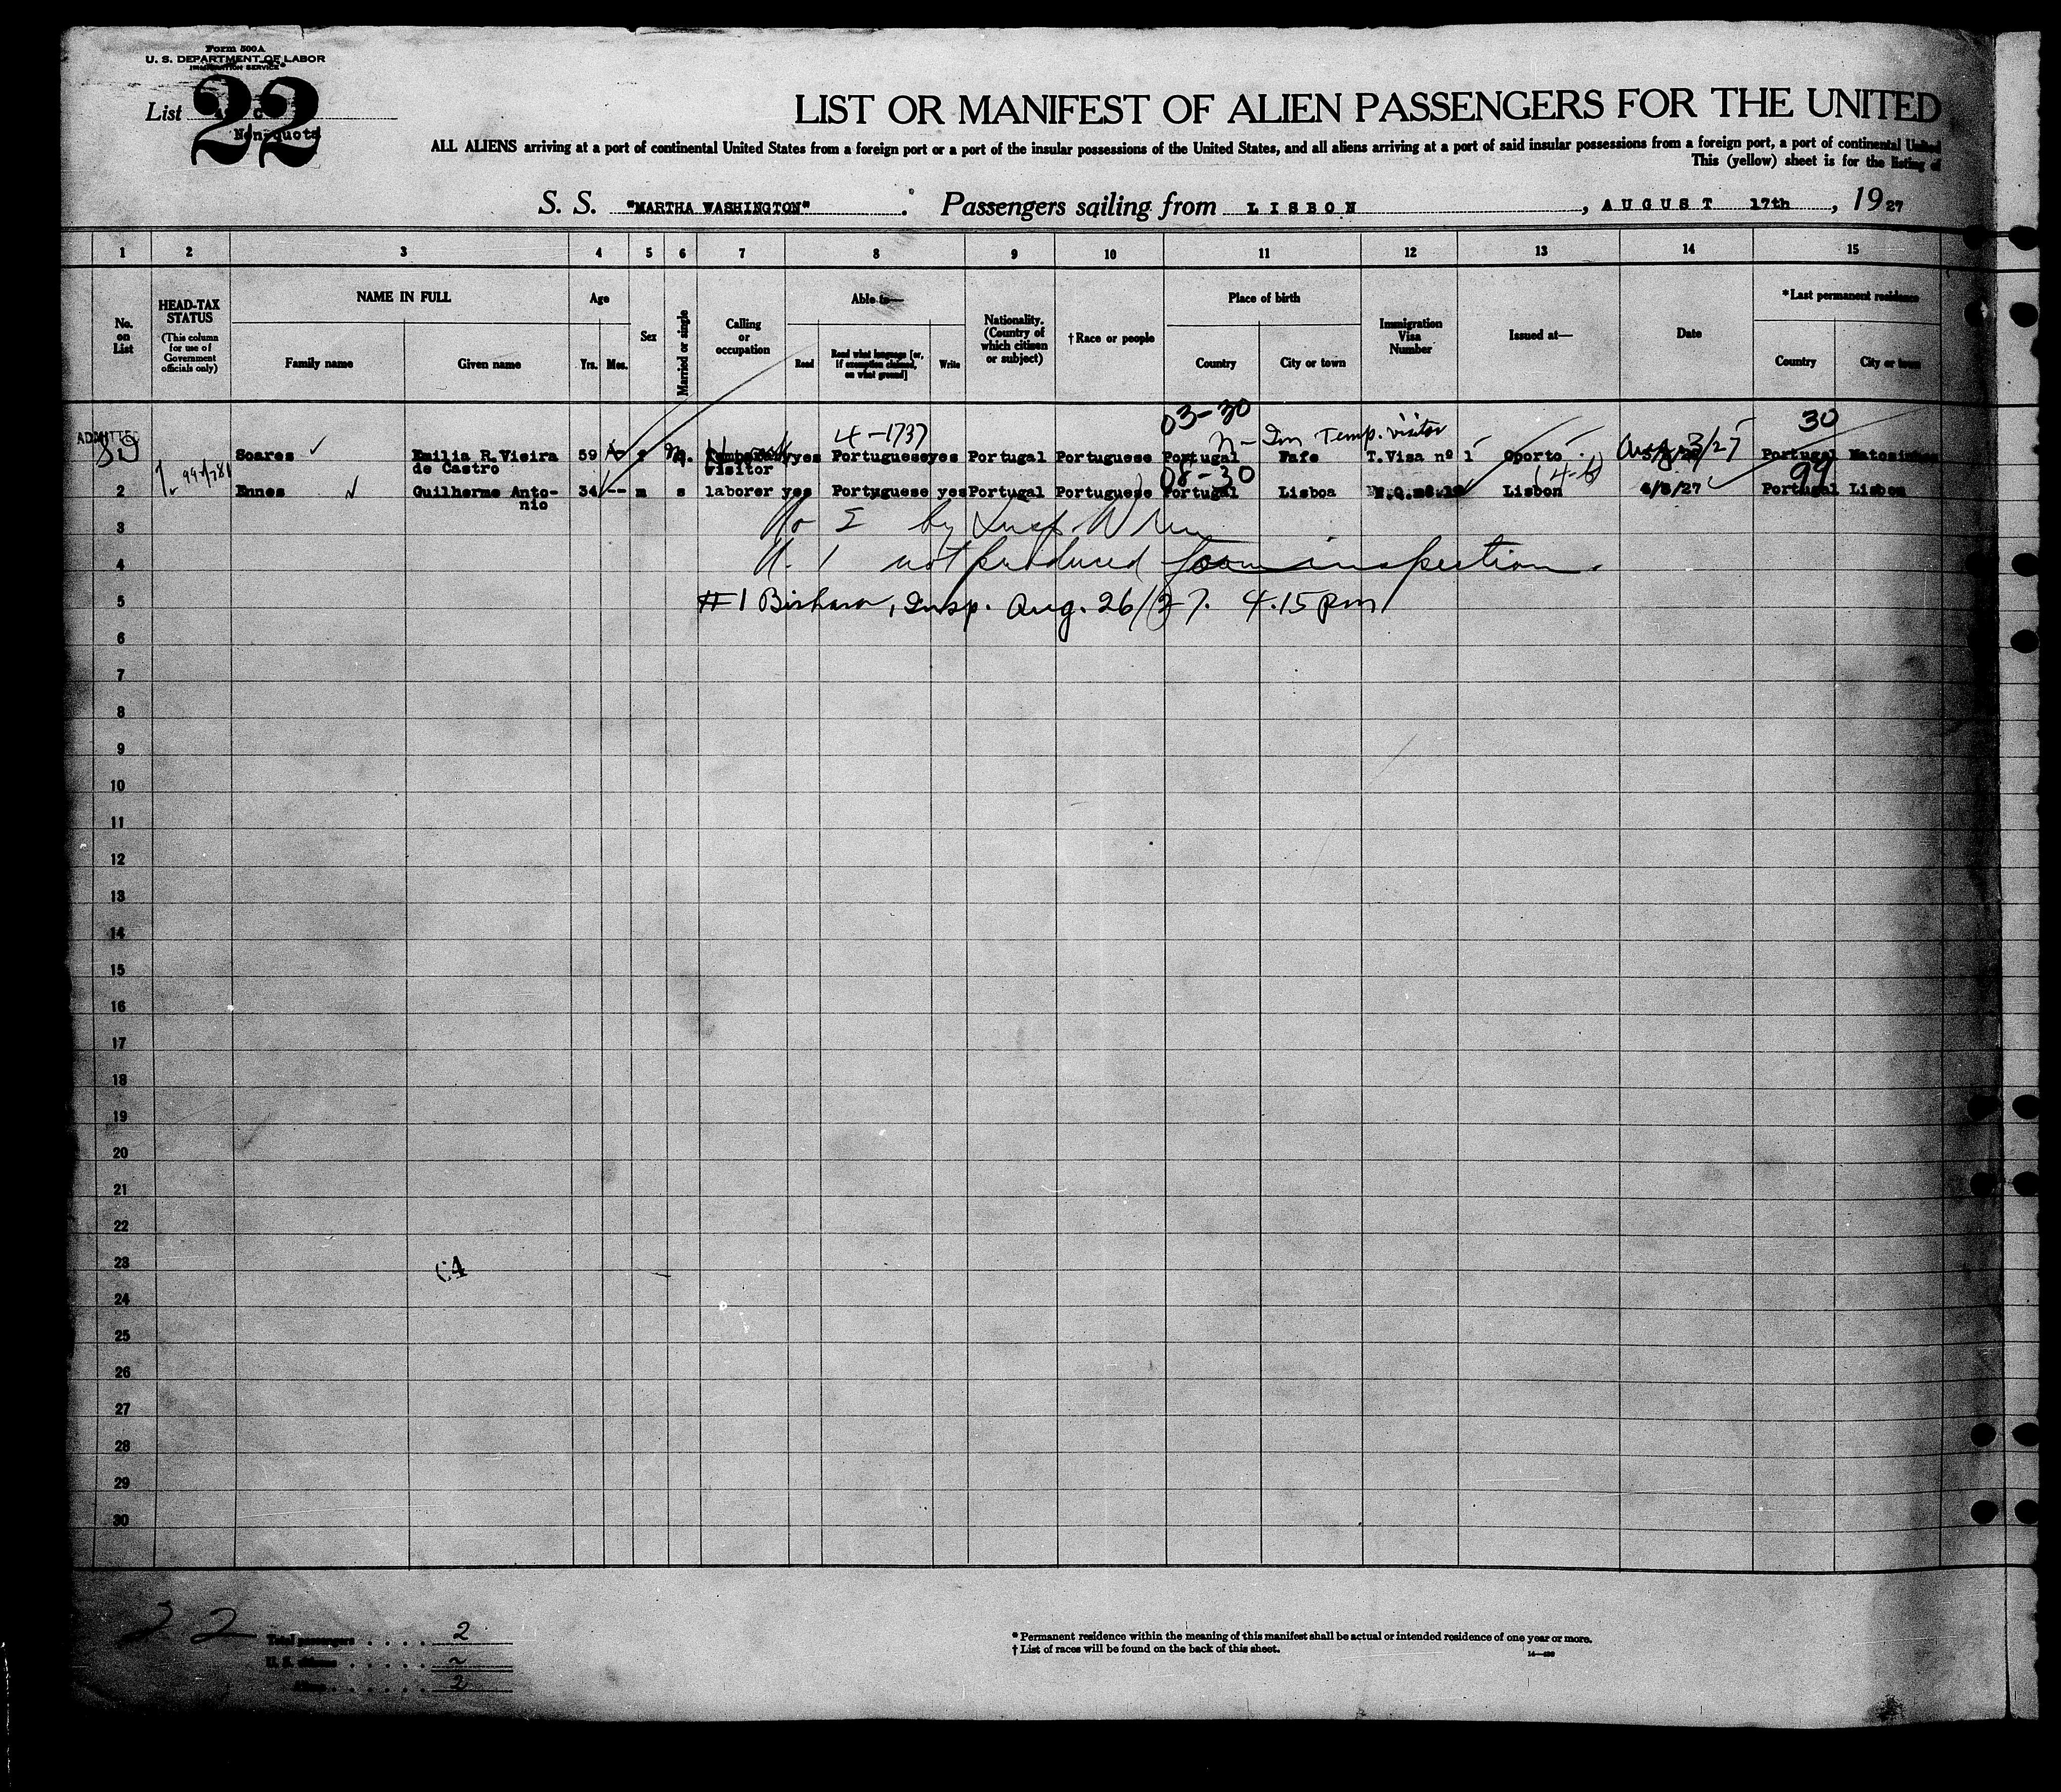 Form 500A
U. S. DEPARTMENT OF LABOR
IMMIGRATION SERVICE
List 22
Non-quota
LIST OR MANIFEST OF ALIEN PASSENGERS FOR THE UNITED
ALL ALIENS arriving at a port of continental United States from a foreign port or a port of the insular possessions of the United States, and all aliens arriving at a port of said insular possessions from a foreign port, a port of continental United
This (yellow) sheet is for the listing of
S. S. "MARTHA WASHINGTON" . Passengers sailing from LISBON , AUGUST 17th , 19 27
1 2 3 4 5 6 7 8 9 10 11 12 13 14 15
No. on List
HEAD-TAX STATUS
(This column for use of Government officials only)
NAME IN FULL
Family name Given name
Age
Yrs. Mos.
Sex
Married or single
Calling or occupation
Able to—
Read
Read what language [or, if exemption claimed, on what ground]
Write
Nationality. (Country of which citizen or subject)
†Race or people
Place of birth
Country City or town
Immigration Visa Number
Issued at—
Date
*Last permanent residence
Country City or town
03-30 30
ADMITTED 4-1737 Temp. visitor
Soares Emilia R. Vieira 59 f m. yes Portuguese yes Portugal Portuguese Portugal Fafe T.Visa nº 1 Oporto Aug. 3/27 Portugal Matosinhos
de Castro visitor
99/781 08-30 99
2 Ennes Guilherme Anto- 34 -- m s laborer yes Portuguese yes Portugal Portuguese Portugal Lisboa Lisbon 6/8/27 Portugal Lisbon
nio
3 by Insp.
4 not produced inspection.
5 #1 Insp. Aug. 26/27. 4.15 pm
6
7
8
9
10
11
12
13
14
15
16
17
18
19
20
21
22
23 C4
24
25
26
27
28
29
30
22
Total passengers . . . . 2
U. S. citizens . . . . . ~
Aliens . . . . . . 2
* Permanent residence within the meaning of this manifest shall be actual or intended residence of one year or more.
† List of races will be found on the back of this sheet.